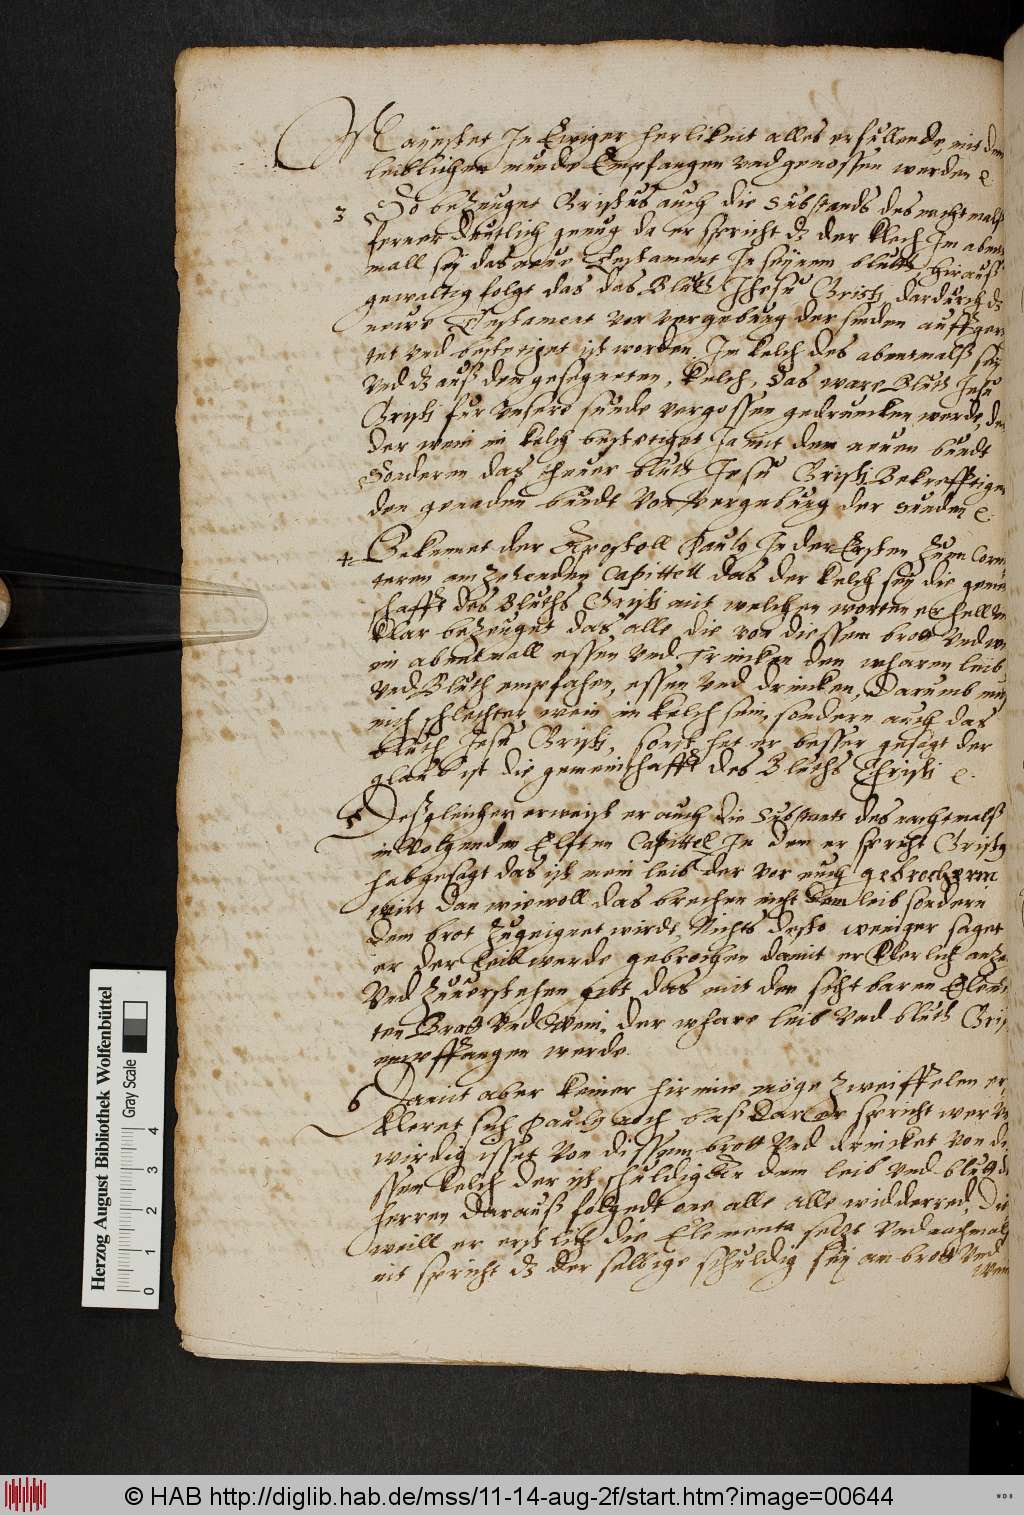 Mayestet In Ewiger herlikeit alles erfullende, mit dem
leiblichen munde Empfangen vnd genossen werden ⁊c.
3 So bezeuget Cristus auch die substands des nachtmalß
ferner deutlich genug da er spricht dz der klech Im abent
mall sey das neue Testament In seynem bluth, hirauß
gewaltig folgt das das Bluth Jhesu Cristi, dardurch dz
neuwe Testament von vergebung der sunden auffger
tet vnd bestetiget ist worden. Im kelch des abentmalß sey
Vnd dz auß dem gesegneten, kelch, das ware Bluth Jesu
Cristi fur vnsere sunde vergossen gedruncken werde, den
der wein im kelch bestetiget Ja nit den neuen bundt
Sonderen das theuer bluth Jesu Cristi Bekrefftiget
den gnaden bundt von vergebung der sunden ⁊c.
4 Bekennet der Apostoll Paulus In der Ersten zum Corin
teren am zehenden Capittell das der kelch sey die gemein
schafft des Bluths Cristi mit welchen worten er hell vn
klar bezeuget das alle die von diessem brott Vnd wein
im abentmall essen vnd trincken den wharen leib
Vnd Bluth empfahen, essen vnd drincken, Darumb mus
nich schlechter wein im kelch sein, sondern auch das
bluth Jesu Cristi, sonst het er besser gesagt der
glaub ist die gemeinschafft des Bluths Christi ⁊c.
5 Desgleichen erweist er auch die substants des nachtmalß
im volgenden Elften Capittel In dem er spricht Cristus
hab gesagt das ist mein leib der vor euch gebrochenn
wirt dan wiewoll das brechen nicht dem leib sondern
dem brot zugeignet wirdt, Nichts desto weniger saget
er der leib werde gebrochen damit er klerlich anze
Vnd zuuerstehen gebt das mit den sichtbaren Elemen
ten Brott Vnd Wein. der whare leib vnd bluth Cris
emffangen werde.
6 Damit aber keiner hirinne möge zweiffelen er
kleret sich Paulus noch baß dar er spricht wer vn
wirdig isset von dissem brott vnd drincket von de
ssem kelch der ist schuldig an dem leib vnd bluth des
herren darauß folgedt one alle alle widderred, Die
weill er erstlich die Elementa setzt vnd nachmals
nit spricht dz der selbige schuldig sey an brott vnd
Wein
Herzog August Bibliothek Wolfenbüttel
Gray Scale
0 1 2 3 4
© HAB http://diglib.hab.de/mss/11-14-aug-2f/start.htm?image=00644